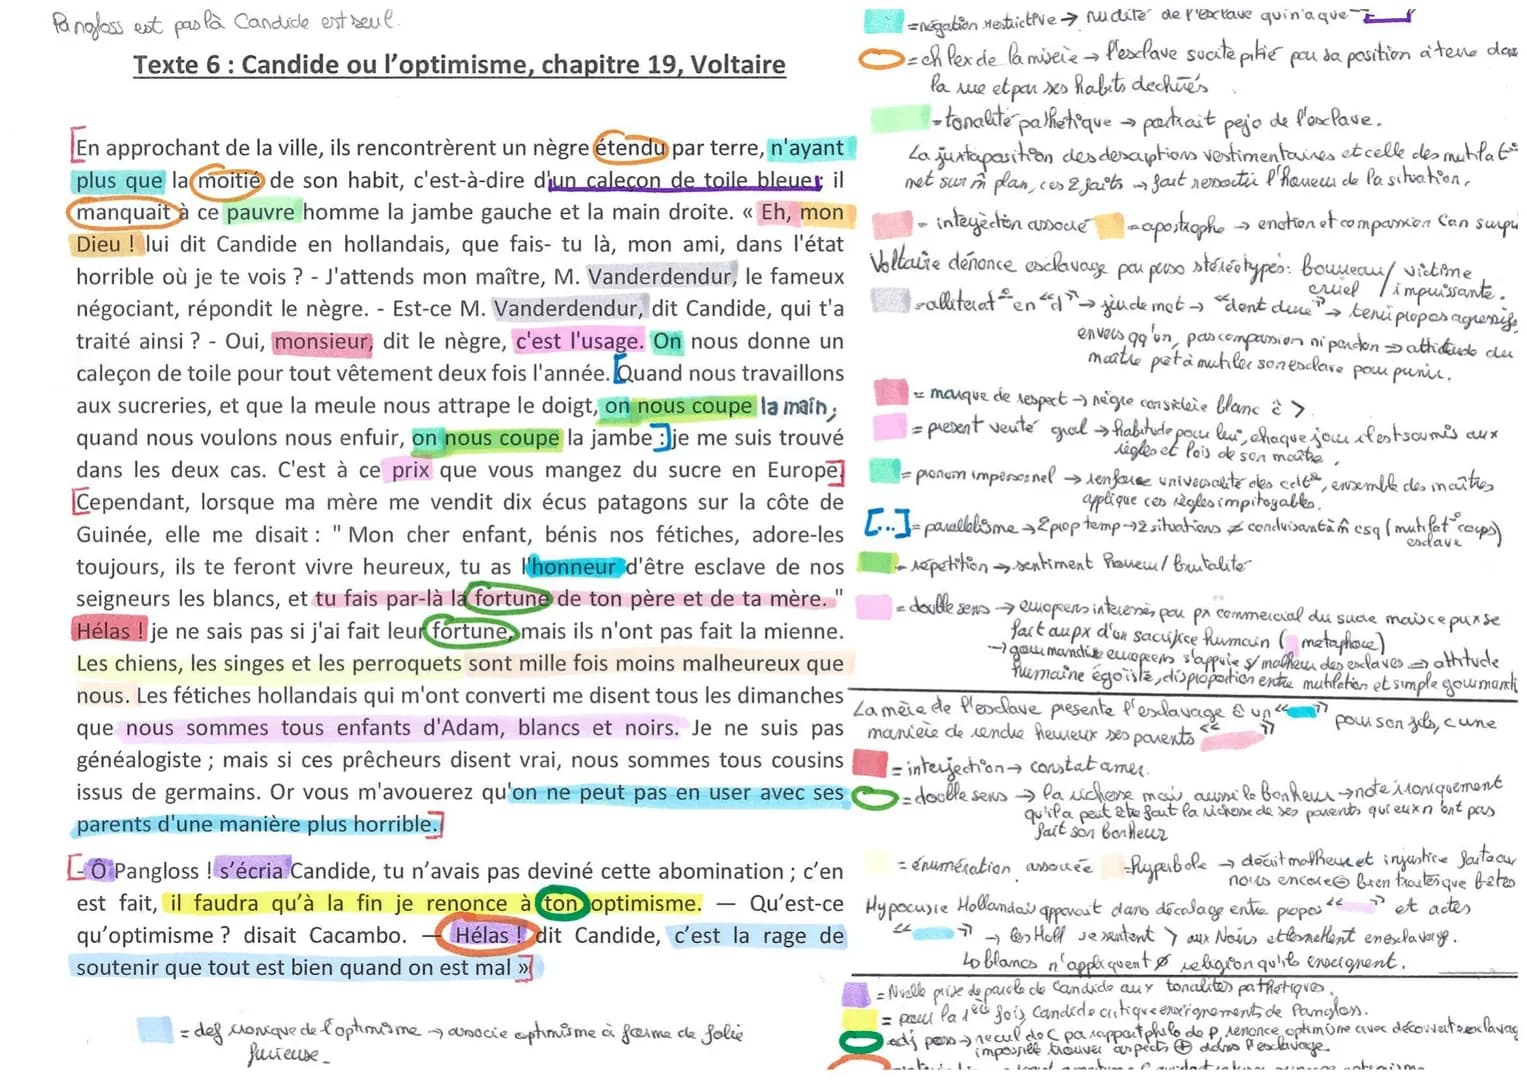 Pangloss est pas là Candide est seul.
Texte 6 : Candide ou l'optimisme, chapitre 19, Voltaire
En approchant de la ville, ils rencontrèrent un nègre étendu par terre, n'ayant
plus que la moitié de son habit, c'est-à-dire d'un caleçon de toile bleue; il
manquait à ce pauvre homme la jambe gauche et la main droite. « Eh, mon
Dieu ! lui dit Candide en hollandais, que fais- tu là, mon ami, dans l'état
horrible où je te vois ? - J'attends mon maître, M. Vanderdendur, le fameux
négociant, répondit le nègre. - Est-ce M. Vanderdendur, dit Candide, qui t'a
traité ainsi ? - Oui, monsieur, dit le nègre, c'est l'usage. On nous donne un
caleçon de toile pour tout vêtement deux fois l'année. [Quand nous travaillons
aux sucreries, et que la meule nous attrape le doigt, on nous coupe la main;
quand nous voulons nous enfuir, on nous coupe la jambe :] je me suis trouvé
dans les deux cas. C'est à ce prix que vous mangez du sucre en Europe]
[Cependant, lorsque ma mère me vendit dix écus patagons sur la côte de
Guinée, elle me disait : " Mon cher enfant, bénis nos fétiches, adore-les
toujours, ils te feront vivre heureux, tu as l'honneur d'être esclave de nos
seigneurs les blancs, et tu fais par-là la fortune de ton père et de ta mère. "
Hélas ! je ne sais pas si j'ai fait leur fortune, mais ils n'ont pas fait la mienne.
Les chiens, les singes et les perroquets sont mille fois moins malheureux que
nous. Les fétiches hollandais qui m'ont converti me disent tous les dimanches
que nous sommes tous enfants d'Adam, blancs et noirs. Je ne suis pas
généalogiste ; mais si ces prêcheurs disent vrai, nous sommes tous cousins
issus de germains. Or vous m'avouerez qu'on ne peut pas en user avec ses
parents d'une manière plus horrible.]
[- Ô Pangloss ! s'écria Candide, tu n'avais pas deviné cette abomination ; c'en
est fait, il faudra qu'à la fin je renonce à ton optimisme. — Qu'est-ce
qu'optimisme ? disait Cacambo. — Hélas ! dit Candide, c'est la rage de
soutenir que tout est bien quand on est mal »]
= def ironique de l'optimisme → associe optimisme à forme de folie
furieuse.
= négation restrictive → nudité de l'esclave qui n'a que
= ch lex de la misère → l'esclave sucite pitié par sa position à terre dans
la rue et par ses habits dechirés
= tonalité pathétique → portrait pejo de l'esclave.
La juxtaposition des descriptions vestimentaires et celle des mutilat°
met sur m̂ plan, ces 2 faits → fait ressortir l'horreur de la situation.
= interjection associé = apostrophe → emotion et compassion Can
Voltaire dénonce esclavage par perso stéréotypés: bourreau / victime
cruel / impuissante.
= alliterat° en "d" → jeu de mot → "dent dure" → tenir propos agressifs
envers qq'un, pas compassion ni pardon ⇒ attitude du
maître prêt à mutiler son esclave pour punir.
= marque de respect → nègre considère blanc ê >
= présent verité gral → habitude pour lui, chaque jour il est soumis aux
règles et lois de son maître.
= pronom impersonnel → renforce universalité des, ensemble des maîtres
applique ces règles impitoyables.
[...] = parallélisme → 2 prop temp → 2 situations ≠ conduisant à m̂ csq (mutilat° corps)
esclave
= répétition → sentiment horreur / brutalité
= double sens → européens interessés par px commercial du sucre mais ce px se
fait au px d'un sacrifice humain ( metaphore)
→ gourmandise européens s'appuie s/ malheur des esclaves ⇒ attitude
humaine égoïste, disproportion entre mutilation et simple gourmandise
La mère de l'esclave presente l'esclavage ê un " " pour son fils, c une
manière de rendre heureux ses parents " "
= interjection → constat amer.
= double sens → la richesse mais aussi le bonheur → note ironiquement
qu'il a peut être fait la richesse de ses parents qui eux n'ont pas
fait son bonheur
= énumération associée = hyperbole → décrit malheur et injustice faite aux
noirs encore ⊖ bien traités que bêtes
Hypocrisie Hollandais apparait dans décalage entre propos " " et actes
" " → les Holl se sentent > aux Noirs et les mettent en esclavage.
↳ blancs n'appliquent ∅ religion qu'ils enseignent.
= Nvelle prise de parole de Candide aux tonalités pathétiques.
= pour la 1ère fois, Candide critique enseignements de Pangloss.
adj poss → recul de C par rapport philo de P, renonce optimisme avec découverte esclavage
impossible trouver aspects ⊕ dans l'esclavage.